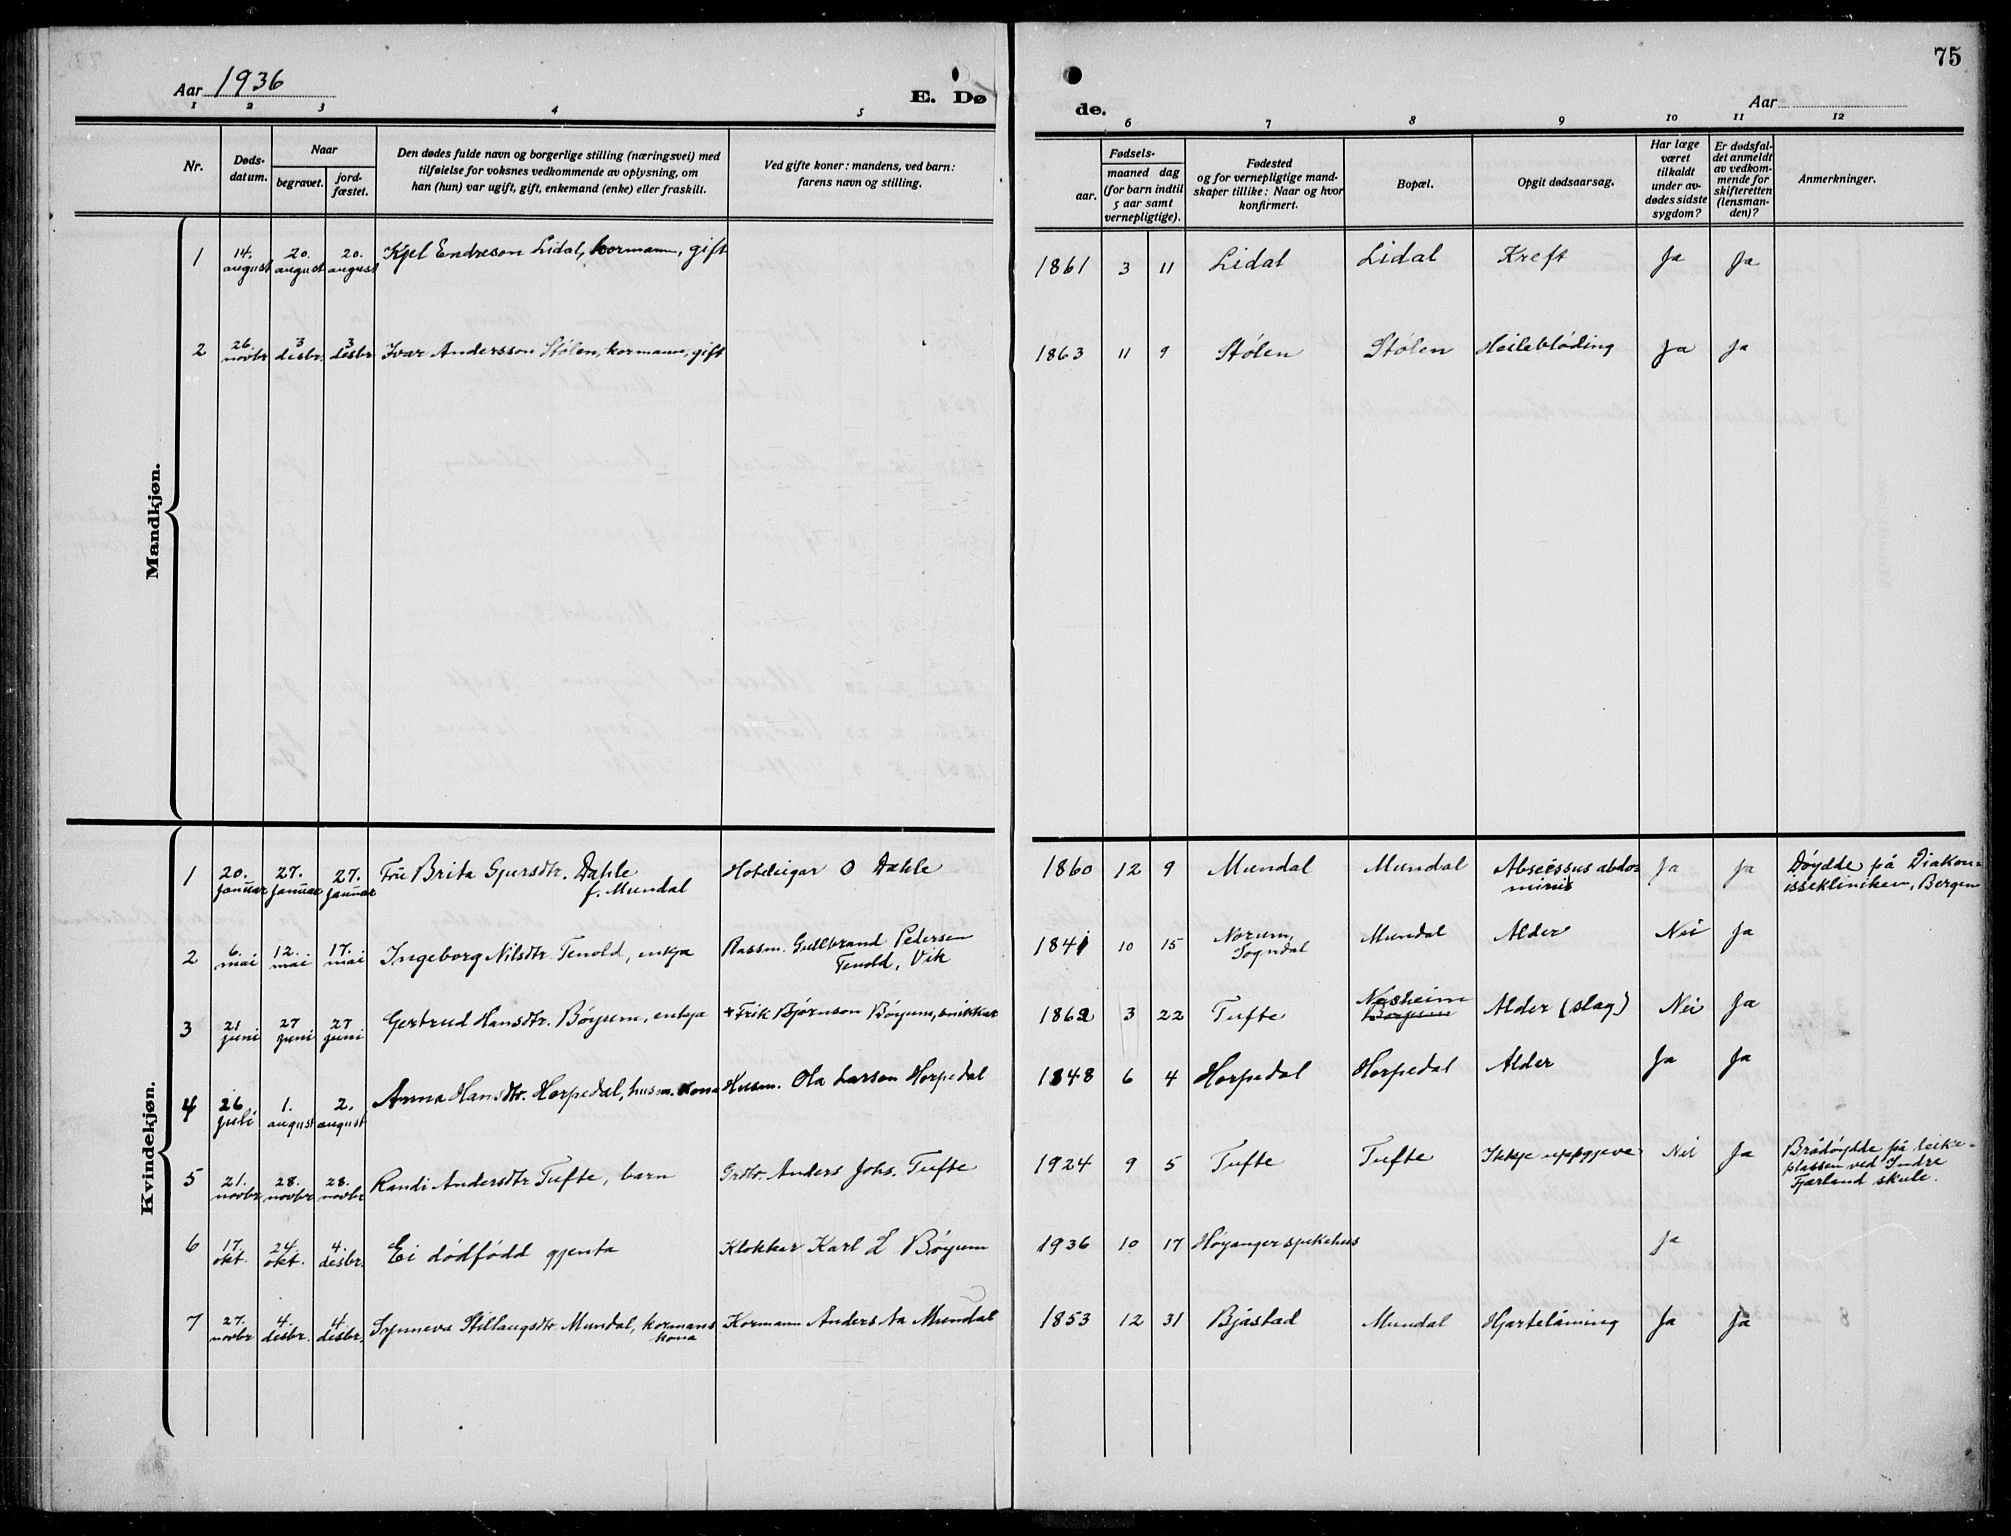 75
Aar 1936
E. Dø
de.
Aar
1 2 3 4 5 6 7 8 9 10 11 12
Nr.
Døds-
datum.
Naar
begravet.
jord-
fæstet.
Den dødes fulde navn og borgerlige stilling (næringsvei) med
tilføielse for voksnes vedkommende av oplysning, om
han (hun) var ugift, gift, enkemand (enke) eller fraskilt.
Ved gifte koner: mandens, ved barn:
farens navn og stilling.
Fødsels-
aar.
maaned dag
(for barn indtil
5 aar samt
vernepligtige).
Fødested
og for vernepligtige mand-
skaper tillike: Naar og hvor
konfirmert.
Bopæl.
Opgit dødsaarsag.
Har læge
været
tilkaldt
under av-
dødes sidste
sygdom?
Er dødsfal-
det anmeldt
av vedkom-
mende for
skifteretten
(lensman-
den)?
Anmerkninger.
Mandkjøn.
1 14. august 20. august 20. august Kjel Endreson Lidal, kormann, gift 1861 3 11 Lidal Lidal Kreft Ja Ja
2 26. novbr 3 desbr. 3 desbr Ivar Andersson Stølen, kormann, gift 1863 11 9 Stølen Stølen Heilebløding Ja Ja
Kvindekjøn.
1 20. januar 27. januar 27. januar Fru Brita Gjursdtr. Dahle Hoteleigar O Dahle 1860 12 9 Mundal Mundal Abscessus abdo- Ja Ja Døydde på Diakon-
f. Mundal minis issekliniken, Bergen
2 6. mai 12. mai 17. mai Ingeborg Nilsdtr. Tenold, enkja Plassm. Gullbrand Pedersen 1841 10 15 Norum, Mundal Alder Nei Ja
Tenold, Vik Sogndal
3 21 juni 27 juni 27 juni Gertrud Hansdtr. Bøyum, enkja + Frik Bjørnson Bøyum, snikkar 1862 3 22 Tufte Nesheim Alder (slag) Nei Ja
Bøyum
4 26 juli 1. august 2. august Anna Hansdtr. Horpedal, husm. kona Husm. Ola Larson Horpedal 1848 6 4 Horpedal Horpedal Alder Ja Ja
5 21. novbr. 28. novbr. 28. novbr Randi Andersdtr Tufte, barn Grdbr. Anders Johs. Tufte 1924 9 5 Tufte Tufte Ikkje uppgjeve Nei Ja Brådøydde på leike-
plassen ved Indre
Fjærland skule.
6 17. okt. 24. okt. 4. desbr. Ei dødfødd gjenta Klokkar Karl L Bøyum 1936 10 17 Høyanger sjukehus Ja
7 27. novbr 4. desbr. 4. desbr. Synneva Stillaugsdtr Mundal, kormanns Kormann Anders Aa Mundal 1853 12 31 Bjåstad Mundal Hjartelåming Ja Ja
kona